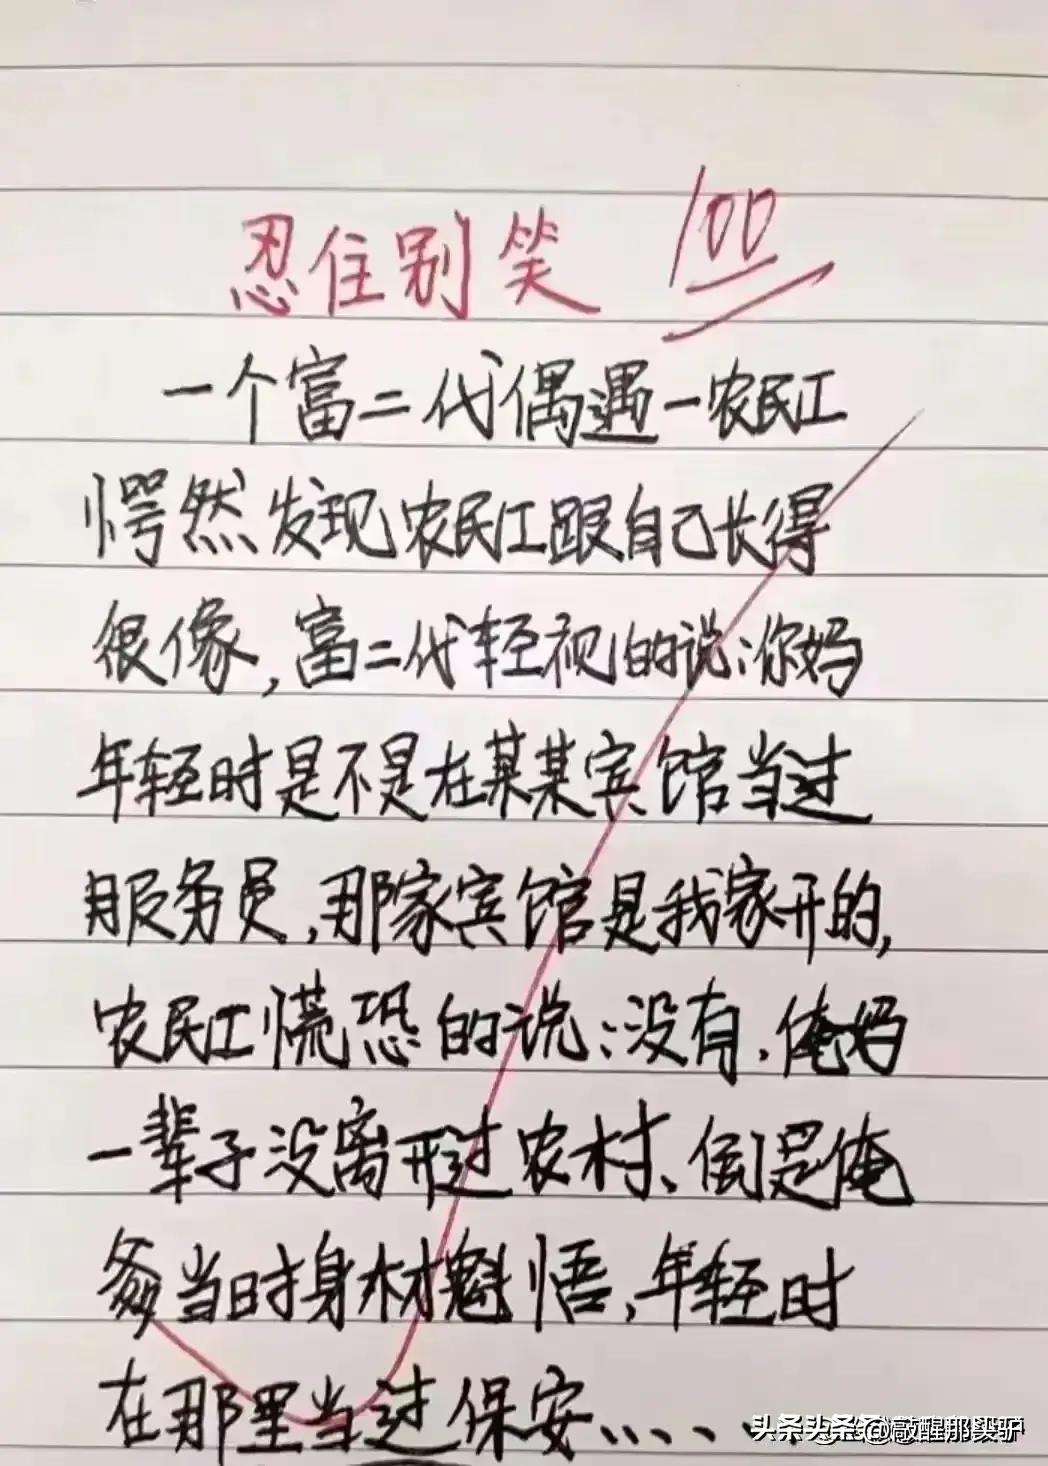 忍住别笑 100
一个富二代偶遇一农民工
愕然发现农民工跟自己长得
很像，富二代轻视的说：你妈
年轻时是不是在某某宾馆当过
服务员，那家宾馆是我家开的，
农民工慌恐的说：没有，俺妈
一辈子没离开过农村、倒是俺
爹当时身材魁悟，年轻时
在那里当过保安、、、、、
头条@敲醒那段驴